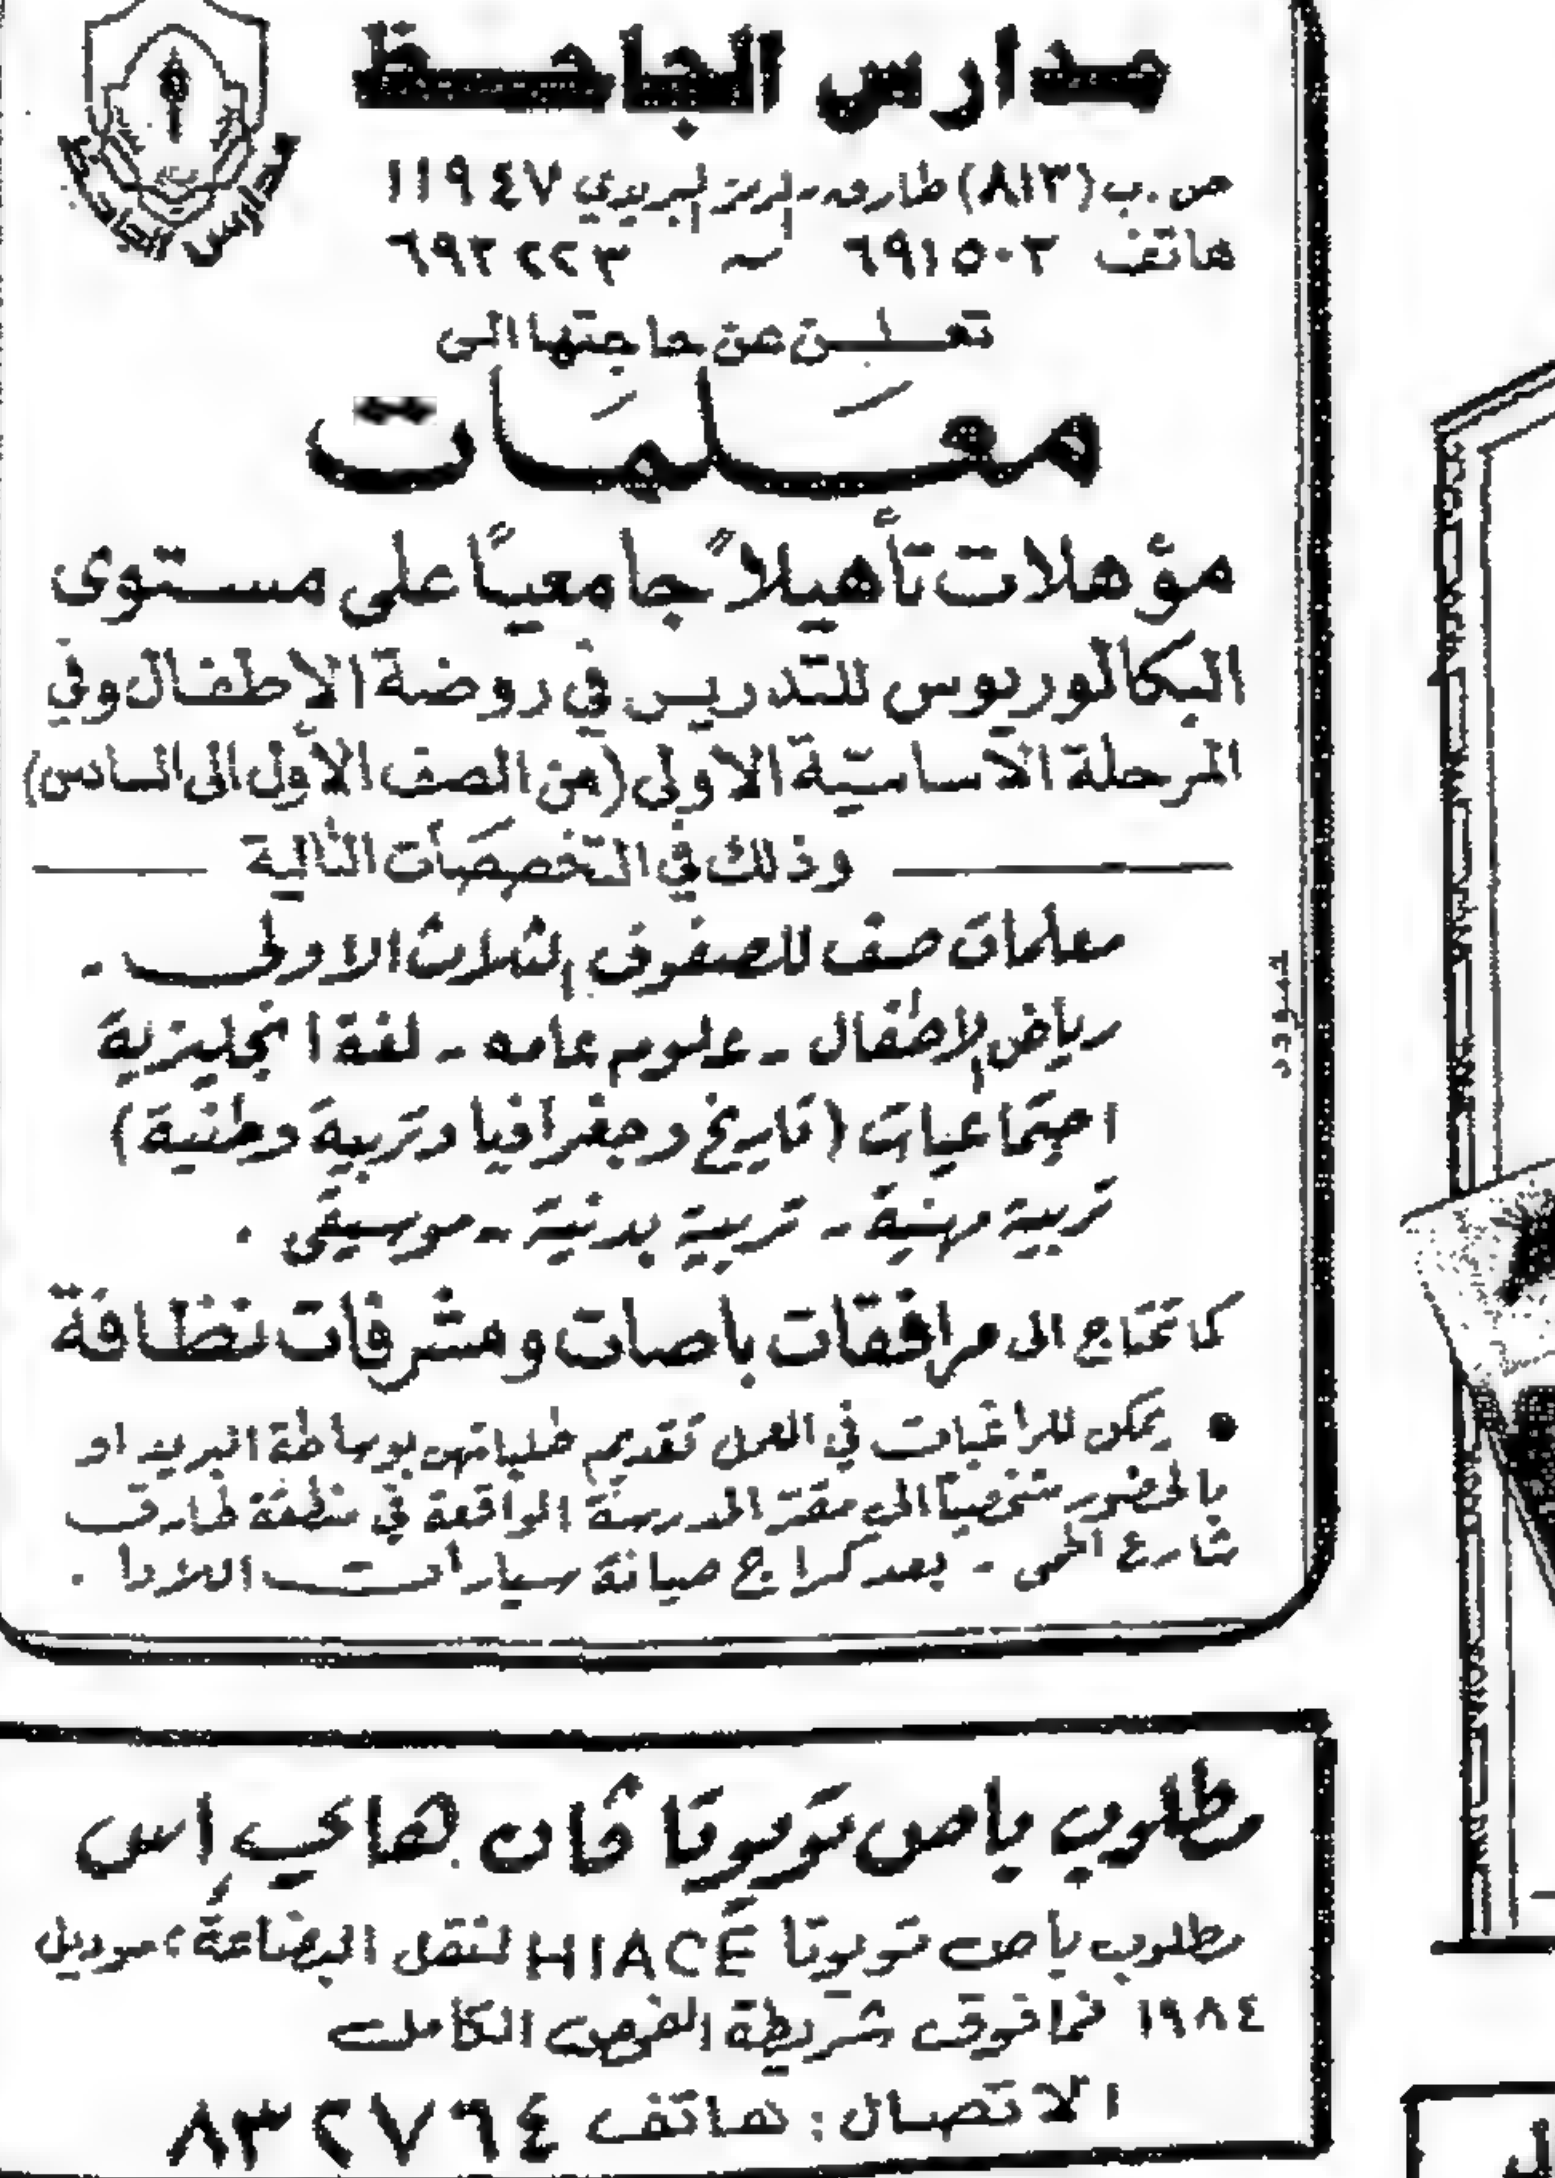 مدارس الجاحظ
مدارس الجاحظ
ص.ب (٨١٣) طارق - الرمز البريدي ١١٩٤٧
هاتف ٦٩١٥٠٢ ~ ٦٩٢٢٢٣
تعلن عن حاجتها الى
معَلمَات
مؤهلات تأهيلاً جامعياً على مستوى
البكالوريوس للتدريس في روضة الاطفال وفي
المرحلة الأساسيّة الاولى (من الصف الأول الى السادس)
وذلك في التخصصَات التالية
معلمات صف للصفوف الثلاث الاولى -
رياض الاطفال - علوم عامه - لغة انجليزية
اجتماعيات (تاريخ وجغرافيا وتربية وطنية)
تربية مهنية - تربية بدنية - موسيقى .
كما تحتاج الى مرافقات باصات ومشرفات نظافة
• يمكن للراغبات في العمل تقديم طلباتهن بوساطة البريد او
بالحضور شخصياً الى مقرّ المدرسة الواقعة في منطقة طارق
شارع - بعد كراج صيانة سيارات اللادا .
حمورد
مطلوب باص تويوتا ڤان هاي إس
مطلوب باص تويوتا HIACE لنقل البضاعة، موديل
١٩٨٤ فما فوق شريطة الفحص الكامل
الاتصال: هاتف ٨٣٢٧٦٤